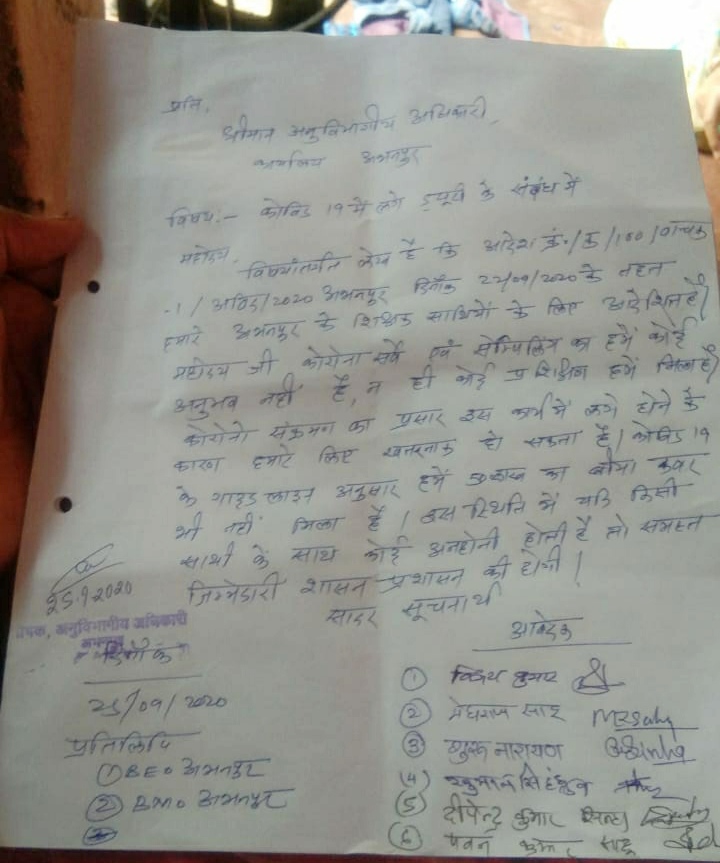 प्रति,
श्रीमान अनुविभागीय अधिकारी,
कार्यालय अभनपुर
विषय:- कोविड 19 में लगे ड्यूटी के संबंध में
महोदय,
विषयांतर्गत लेख है कि आदेश क्रं./क/100/वाचक
-1/अ.वि.अ/2020 अभनपुर दिनाँक 22/09/2020 के तहत
हमारे अभनपुर के शिक्षक साथियों के लिए आदेशित है।
महोदय जी कोरोना सर्वे एवं सेम्पिलिंग का हमें कोई
अनुभव नहीं है, न ही कोई प्रशिक्षण हमें मिला है।
कोरोना संक्रमण का प्रसार इस कार्य में लगे होने के
कारण हमारे लिए खतरनाक हो सकता है। कोविड 19
के गाइड लाइन अनुसार हमें 50 लाख का बीमा कवर
भी नहीं मिला है। इस स्थिति में यदि किसी
साथी के साथ कोई अनहोनी होती है तो समस्त
जिम्मेदारी शासन-प्रशासन की होगी।
सादर सूचनार्थ
25.9.2020
अनुविभागीय अधिकारी
अभनपुर
दिनाँक
25/09/2020
प्रतिलिपि
① BEO अभनपुर
② BMO अभनपुर
आवेदक
① विजय कुमार
② मेघराज साहू MRSahu
③ नारायण
④
⑤ दीपेन्द्र कुमार सिन्हा
⑥ पवन कुमार साहू